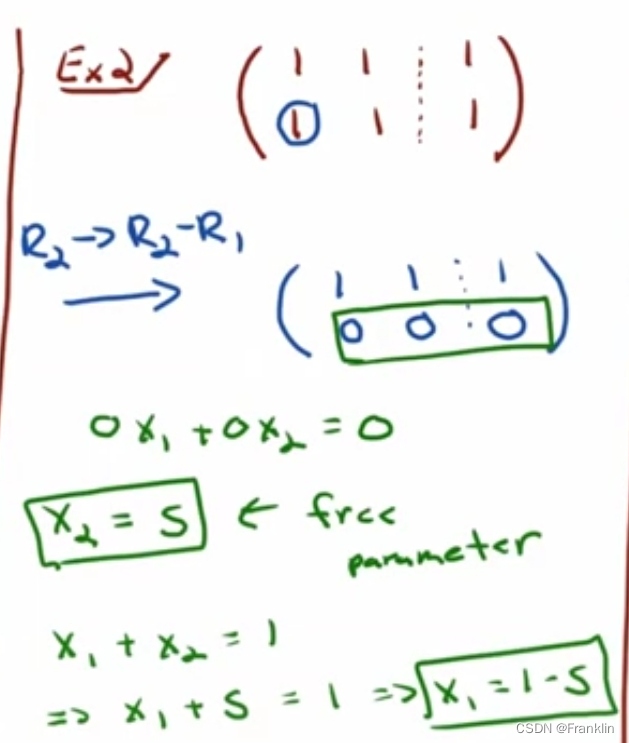 Ex2/
( 1 1 ⋮ 1 )
( 1 1 ⋮ 1 )
R₂ → R₂-R₁
( 1 1 ⋮ 1 )
( 0 0 ⋮ 0 )
0x₁ + 0x₂ = 0
x₂ = S ← free
parameter
x₁ + x₂ = 1
=> x₁ + S = 1 => x₁ = 1 - S
CSDN @Franklin